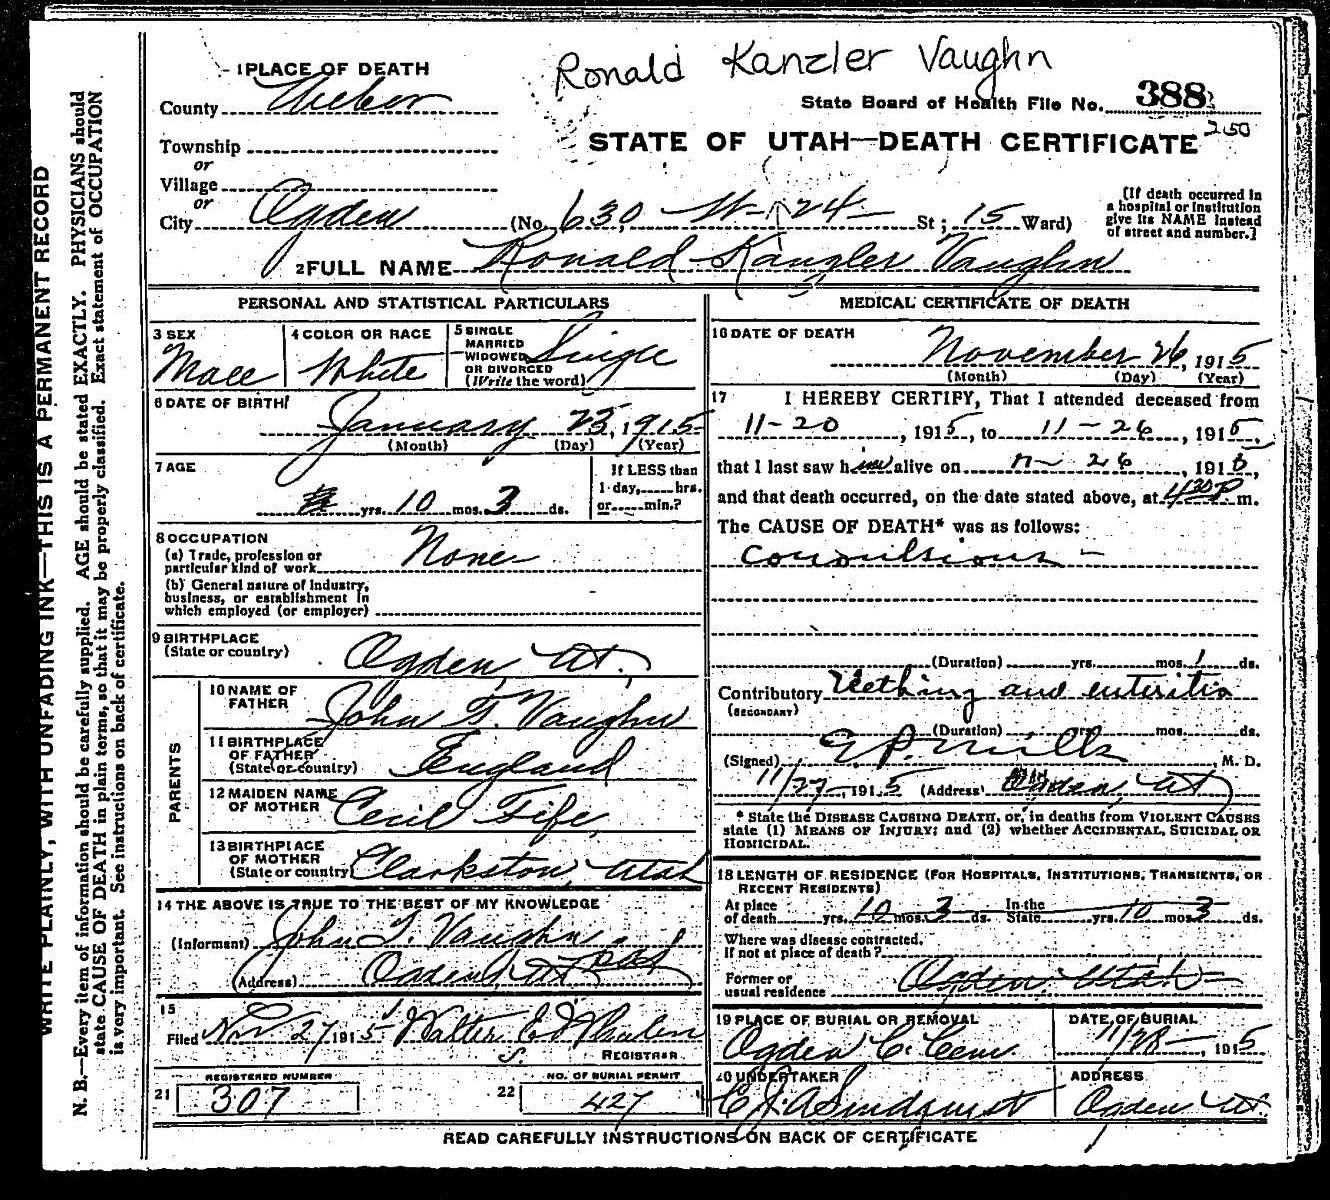 WRITE PLAINLY, WITH UNFADING INK—THIS IS A PERMANENT RECORD
N. B.—Every item of information should be carefully supplied. AGE should be stated EXACTLY. PHYSICIANS should
state CAUSE OF DEATH in plain terms, so that it may be properly classified. Exact statement of OCCUPATION
is very important. See instructions on back of certificate.
Ronald Kanzler Vaughn
1 PLACE OF DEATH
County Weber
State Board of Health File No. 388
250
STATE OF UTAH—DEATH CERTIFICATE
Township
or
Village
or
City Ogden (No. 630 W- 24 St; 15 Ward)
[If death occurred in
a hospital or institution
give its NAME instead
of street and number.]
2 FULL NAME Ronald Kanzler Vaughn
PERSONAL AND STATISTICAL PARTICULARS
3 SEX
Male
4 COLOR OR RACE
White
5 SINGLE
MARRIED
WIDOWED
OR DIVORCED
(Write the word)
Single
6 DATE OF BIRTH
January 23, 1915
(Month) (Day) (Year)
7 AGE
yrs. 10 mos. 3 ds.
If LESS than
1 day, hrs.
or min.?
8 OCCUPATION
(a) Trade, profession or
particular kind of work None
(b) General nature of industry,
business, or establishment in
which employed (or employer)
9 BIRTHPLACE
(State or country)
Ogden, Ut.,
PARENTS
10 NAME OF
FATHER
John T. Vaughn
11 BIRTHPLACE
OF FATHER
(State or country)
England
12 MAIDEN NAME
OF MOTHER
Cecil Fife,
13 BIRTHPLACE
OF MOTHER
(State or country)
Clarkston, Utah
14 THE ABOVE IS TRUE TO THE BEST OF MY KNOWLEDGE
(Informant) John T. Vaughn
(Address) Ogden, Ut
15
Filed Nov 27 1915 Walter E Whalen
REGISTRAR
REGISTERED NUMBER
21 307
NO. OF BURIAL PERMIT
22 427
MEDICAL CERTIFICATE OF DEATH
16 DATE OF DEATH
November 26, 1915
(Month) (Day) (Year)
17 I HEREBY CERTIFY, That I attended deceased from
11-20, 1915, to 11-26, 1915,
that I last saw him alive on 11- 26, 1915,
and that death occurred, on the date stated above, at 430 P m.
The CAUSE OF DEATH* was as follows:
Convulsions -
(Duration) yrs. mos. 1 ds.
Contributory Teething and enteritis
(SECONDARY)
(Duration) yrs. mos. ds.
(Signed) E. P. Mills, M. D.
11/27-, 1915 (Address) Ogden, Ut
* State the DISEASE CAUSING DEATH, or, in deaths from VIOLENT CAUSES
state (1) MEANS OF INJURY; and (2) whether ACCIDENTAL, SUICIDAL OR
HOMICIDAL.
18 LENGTH OF RESIDENCE (FOR HOSPITALS, INSTITUTIONS, TRANSIENTS, OR
RECENT RESIDENTS)
At place
of death yrs. 10 mos. 3 ds.
In the
State yrs. 10 mos. 3 ds.
Where was disease contracted,
If not at place of death?
Former or
usual residence Ogden Utah -
19 PLACE OF BURIAL OR REMOVAL
Ogden C. Cem.
DATE OF BURIAL
11/28-, 1915
20 UNDERTAKER
ADDRESS
Ogden Ut.
READ CAREFULLY INSTRUCTIONS ON BACK OF CERTIFICATE